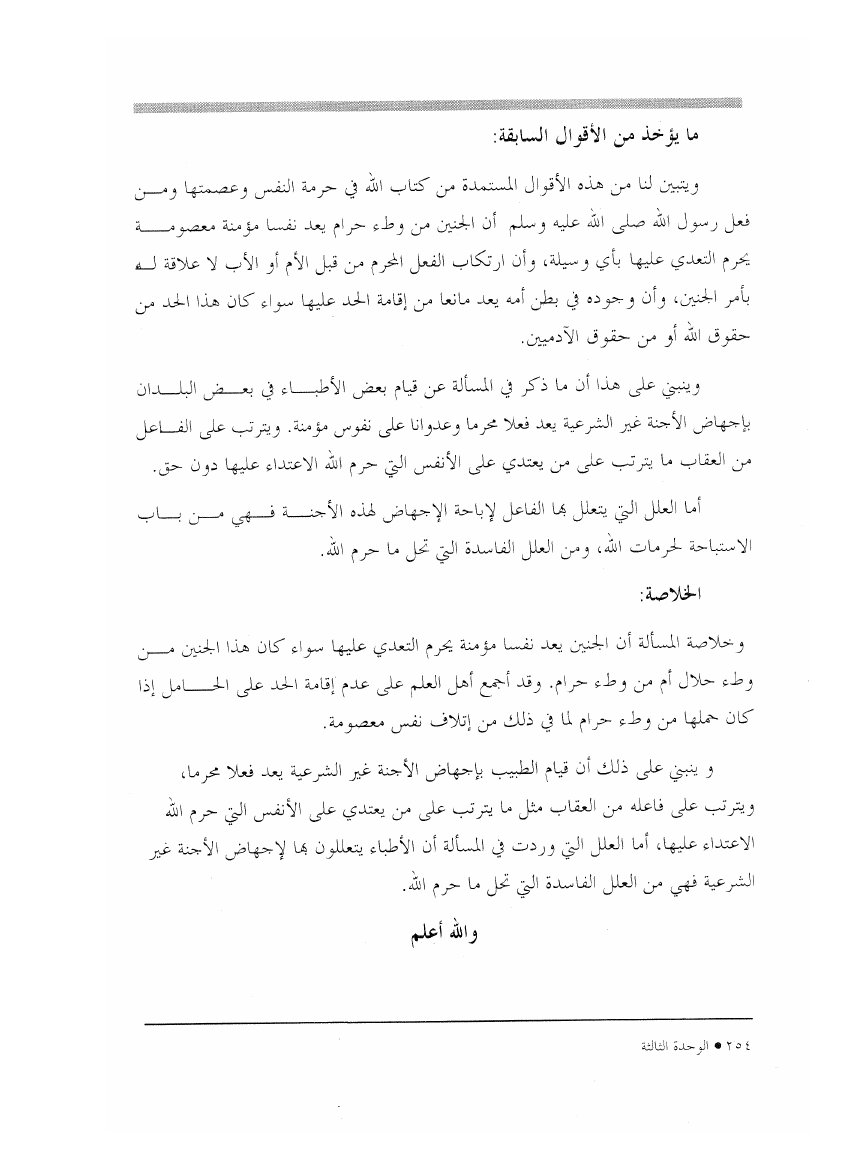 ما يؤخذ من الأقوال السابقة:
ويتبين لنا من هذه الأقوال المستمدة من كتاب الله في حرمة النفس وعصمتها ومن
فعل رسول الله صلى الله عليه وسلم أن الجنين من وطء حرام يعد نفسا مؤمنة معصومة
يحرم التعدي عليها بأي وسيلة، وأن ارتكاب الفعل المحرم من قبل الأم أو الأب لا علاقة له
بأمر الجنين، وأن وجوده في بطن أمه يعد مانعا من إقامة الحد عليها سواء كان هذا الحد من
حقوق الله أو من حقوق الآدميين.
وينبني على هذا أن ما ذكر في المسألة عن قيام بعض الأطباء في بعض البلدان
بإجهاض الأجنة غير الشرعية يعد فعلا محرما وعدوانا على نفوس مؤمنة. ويترتب على الفاعل
من العقاب ما يترتب على من يعتدي على الأنفس التي حرم الله الاعتداء عليها دون حق.
أما العلل التي يتعلل بها الفاعل لإباحة الإجهاض لهذه الأجنة فهي من باب
الاستباحة لحرمات الله، ومن العلل الفاسدة التي تحل ما حرم الله.
الخلاصة:
وخلاصة المسألة أن الجنين يعد نفسا مؤمنة يحرم التعدي عليها سواء كان هذا الجنين من
وطء حلال أم من وطء حرام. وقد أجمع أهل العلم على عدم إقامة الحد على الحامل إذا
كان حملها من وطء حرام لما في ذلك من إتلاف نفس معصومة.
و ينبني على ذلك أن قيام الطبيب بإجهاض الأجنة غير الشرعية يعد فعلا محرما،
ويترتب على فاعله من العقاب مثل ما يترتب على من يعتدي على الأنفس التي حرم الله
الاعتداء عليها، أما العلل التي وردت في المسألة أن الأطباء يتعللون بها لإجهاض الأجنة غير
الشرعية فهي من العلل الفاسدة التي تحل ما حرم الله.
والله أعلم
٢٥٤ ● الوحدة الثالثة